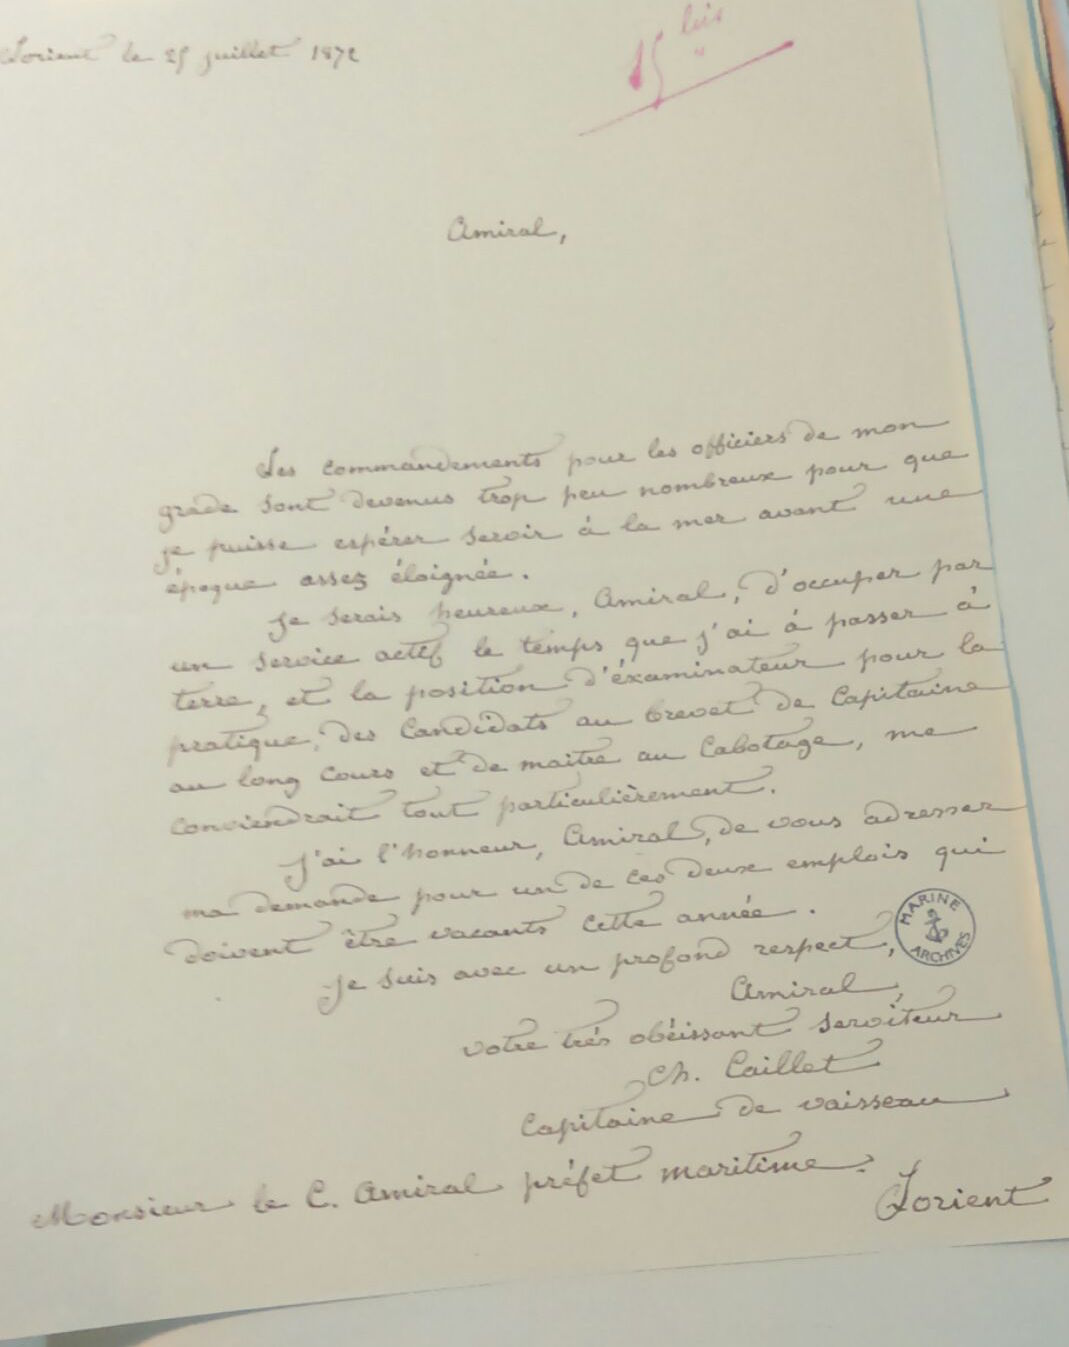 Lorient le 25 juillet 1872
15 bis
Amiral,
Les commandements pour les officiers de mon
grade sont devenus trop peu nombreux pour que
je puisse espérer servir à la mer avant une
époque assez éloignée.
Je serais heureux, Amiral, d'occuper par
un service actif le temps que j'ai à passer à
terre, et la position d'éxaminateur pour la
pratique, des Candidats au brevet de Capitaine
au long Cours et de maitre au Cabotage, me
conviendrait tout particulièrement.
J'ai l'honneur, Amiral, de vous adresser
ma demande pour un de ces deux emplois qui
doivent être vacants cette année.
Je suis avec un profond respect,
MARINE
ARCHIVES
Amiral,
votre très obéissant serviteur
Ch. Caillet
Capitaine de vaisseau
Monsieur le C. Amiral préfet maritime.
Lorient